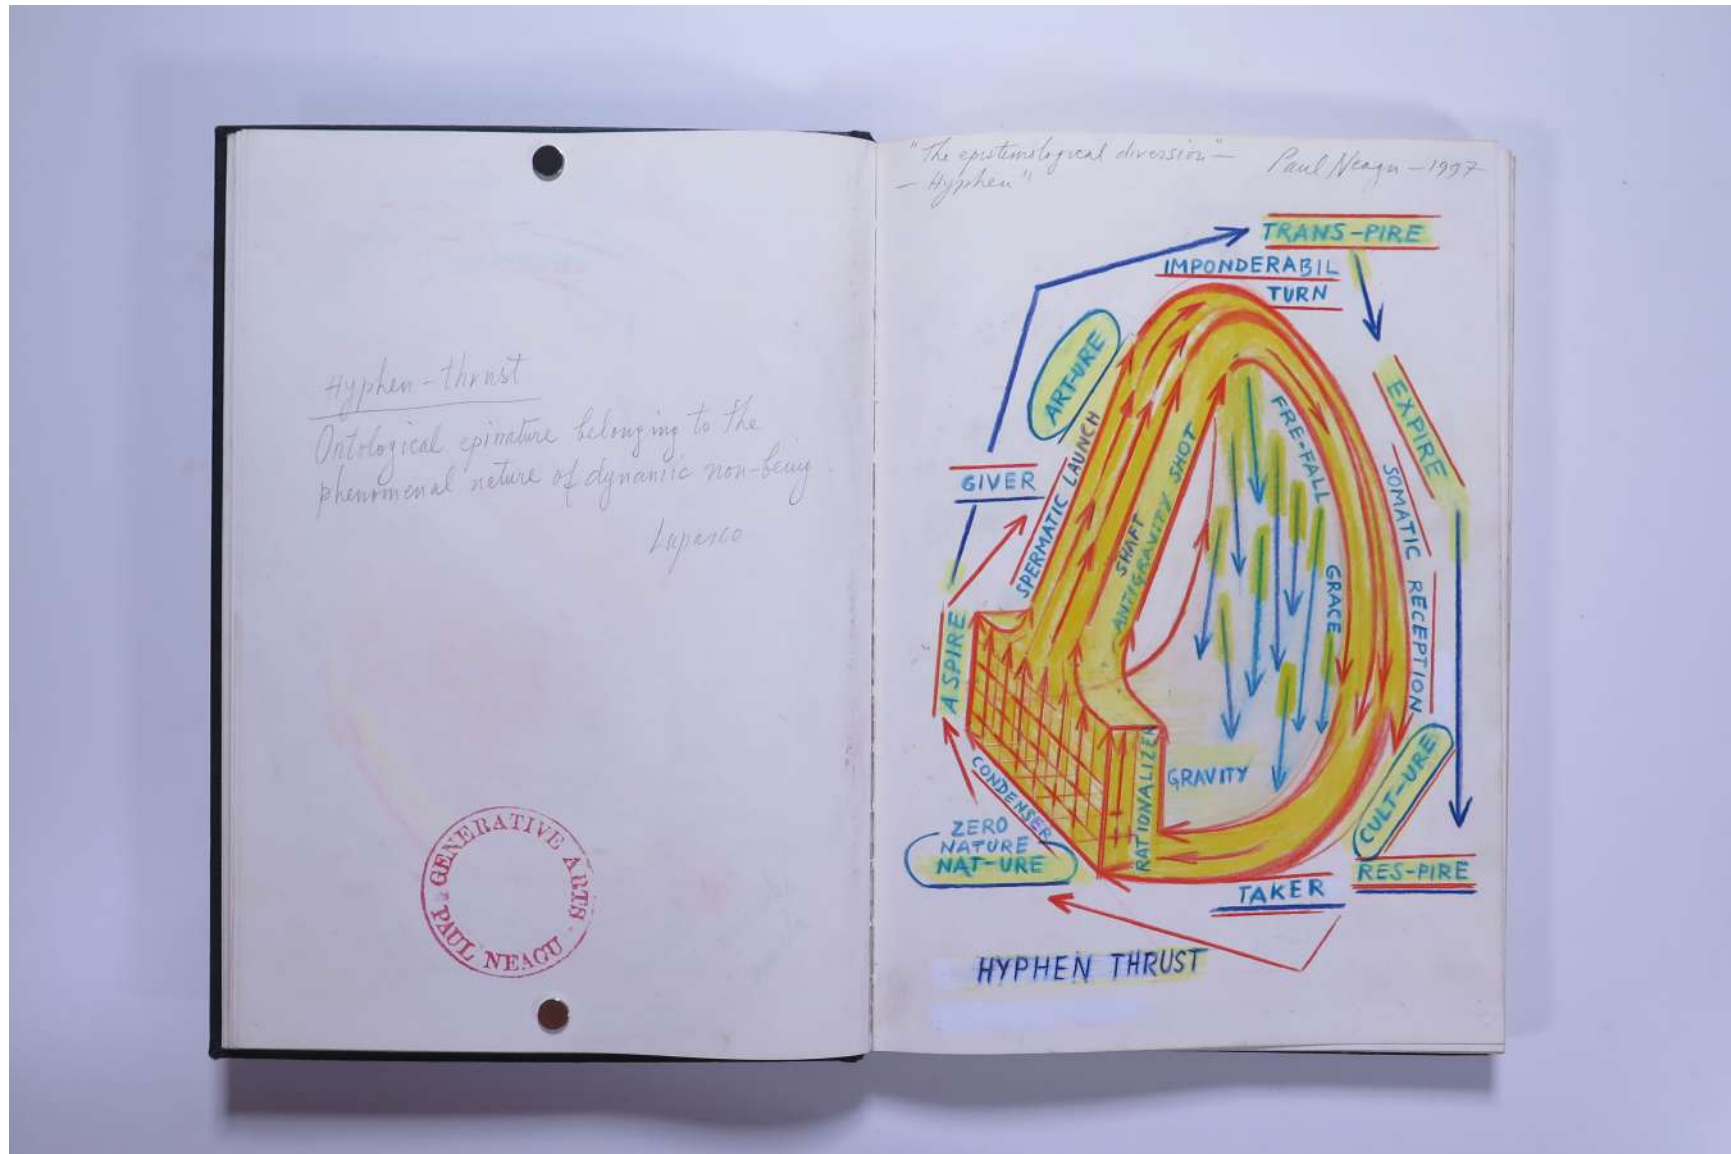 Hyphen-thrust
Ontological epinature belonging to the
phenomenal nature of dynamic non-being.
Lupasco
GENERATIVE ARTS
PAUL NEAGU
"The epistemological diversion"—
— Hyphen"
Paul Neagu — 1997
TRANS-PIRE
IMPONDERABIL
TURN
ART-URE
EXPIRE
GIVER
SPERMATIC LAUNCH
SHAFT
ANTIGRAVITY SHOT
FRE-FALL
GRACE
SOMATIC RECEPTION
ASPIRE
CONDENSER
RATIONALIZER
GRAVITY
CULT-URE
ZERO
NATURE
NAT-URE
RES-PIRE
TAKER
HYPHEN THRUST